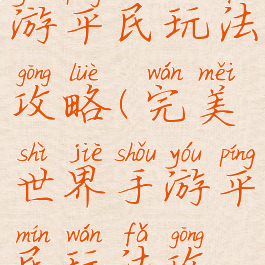 游平民玩法
gōng lüè wán měi
攻略(完美
shì jiè shǒu yóu píng
世界手游平
mín wán fǎ gōng
民玩法攻